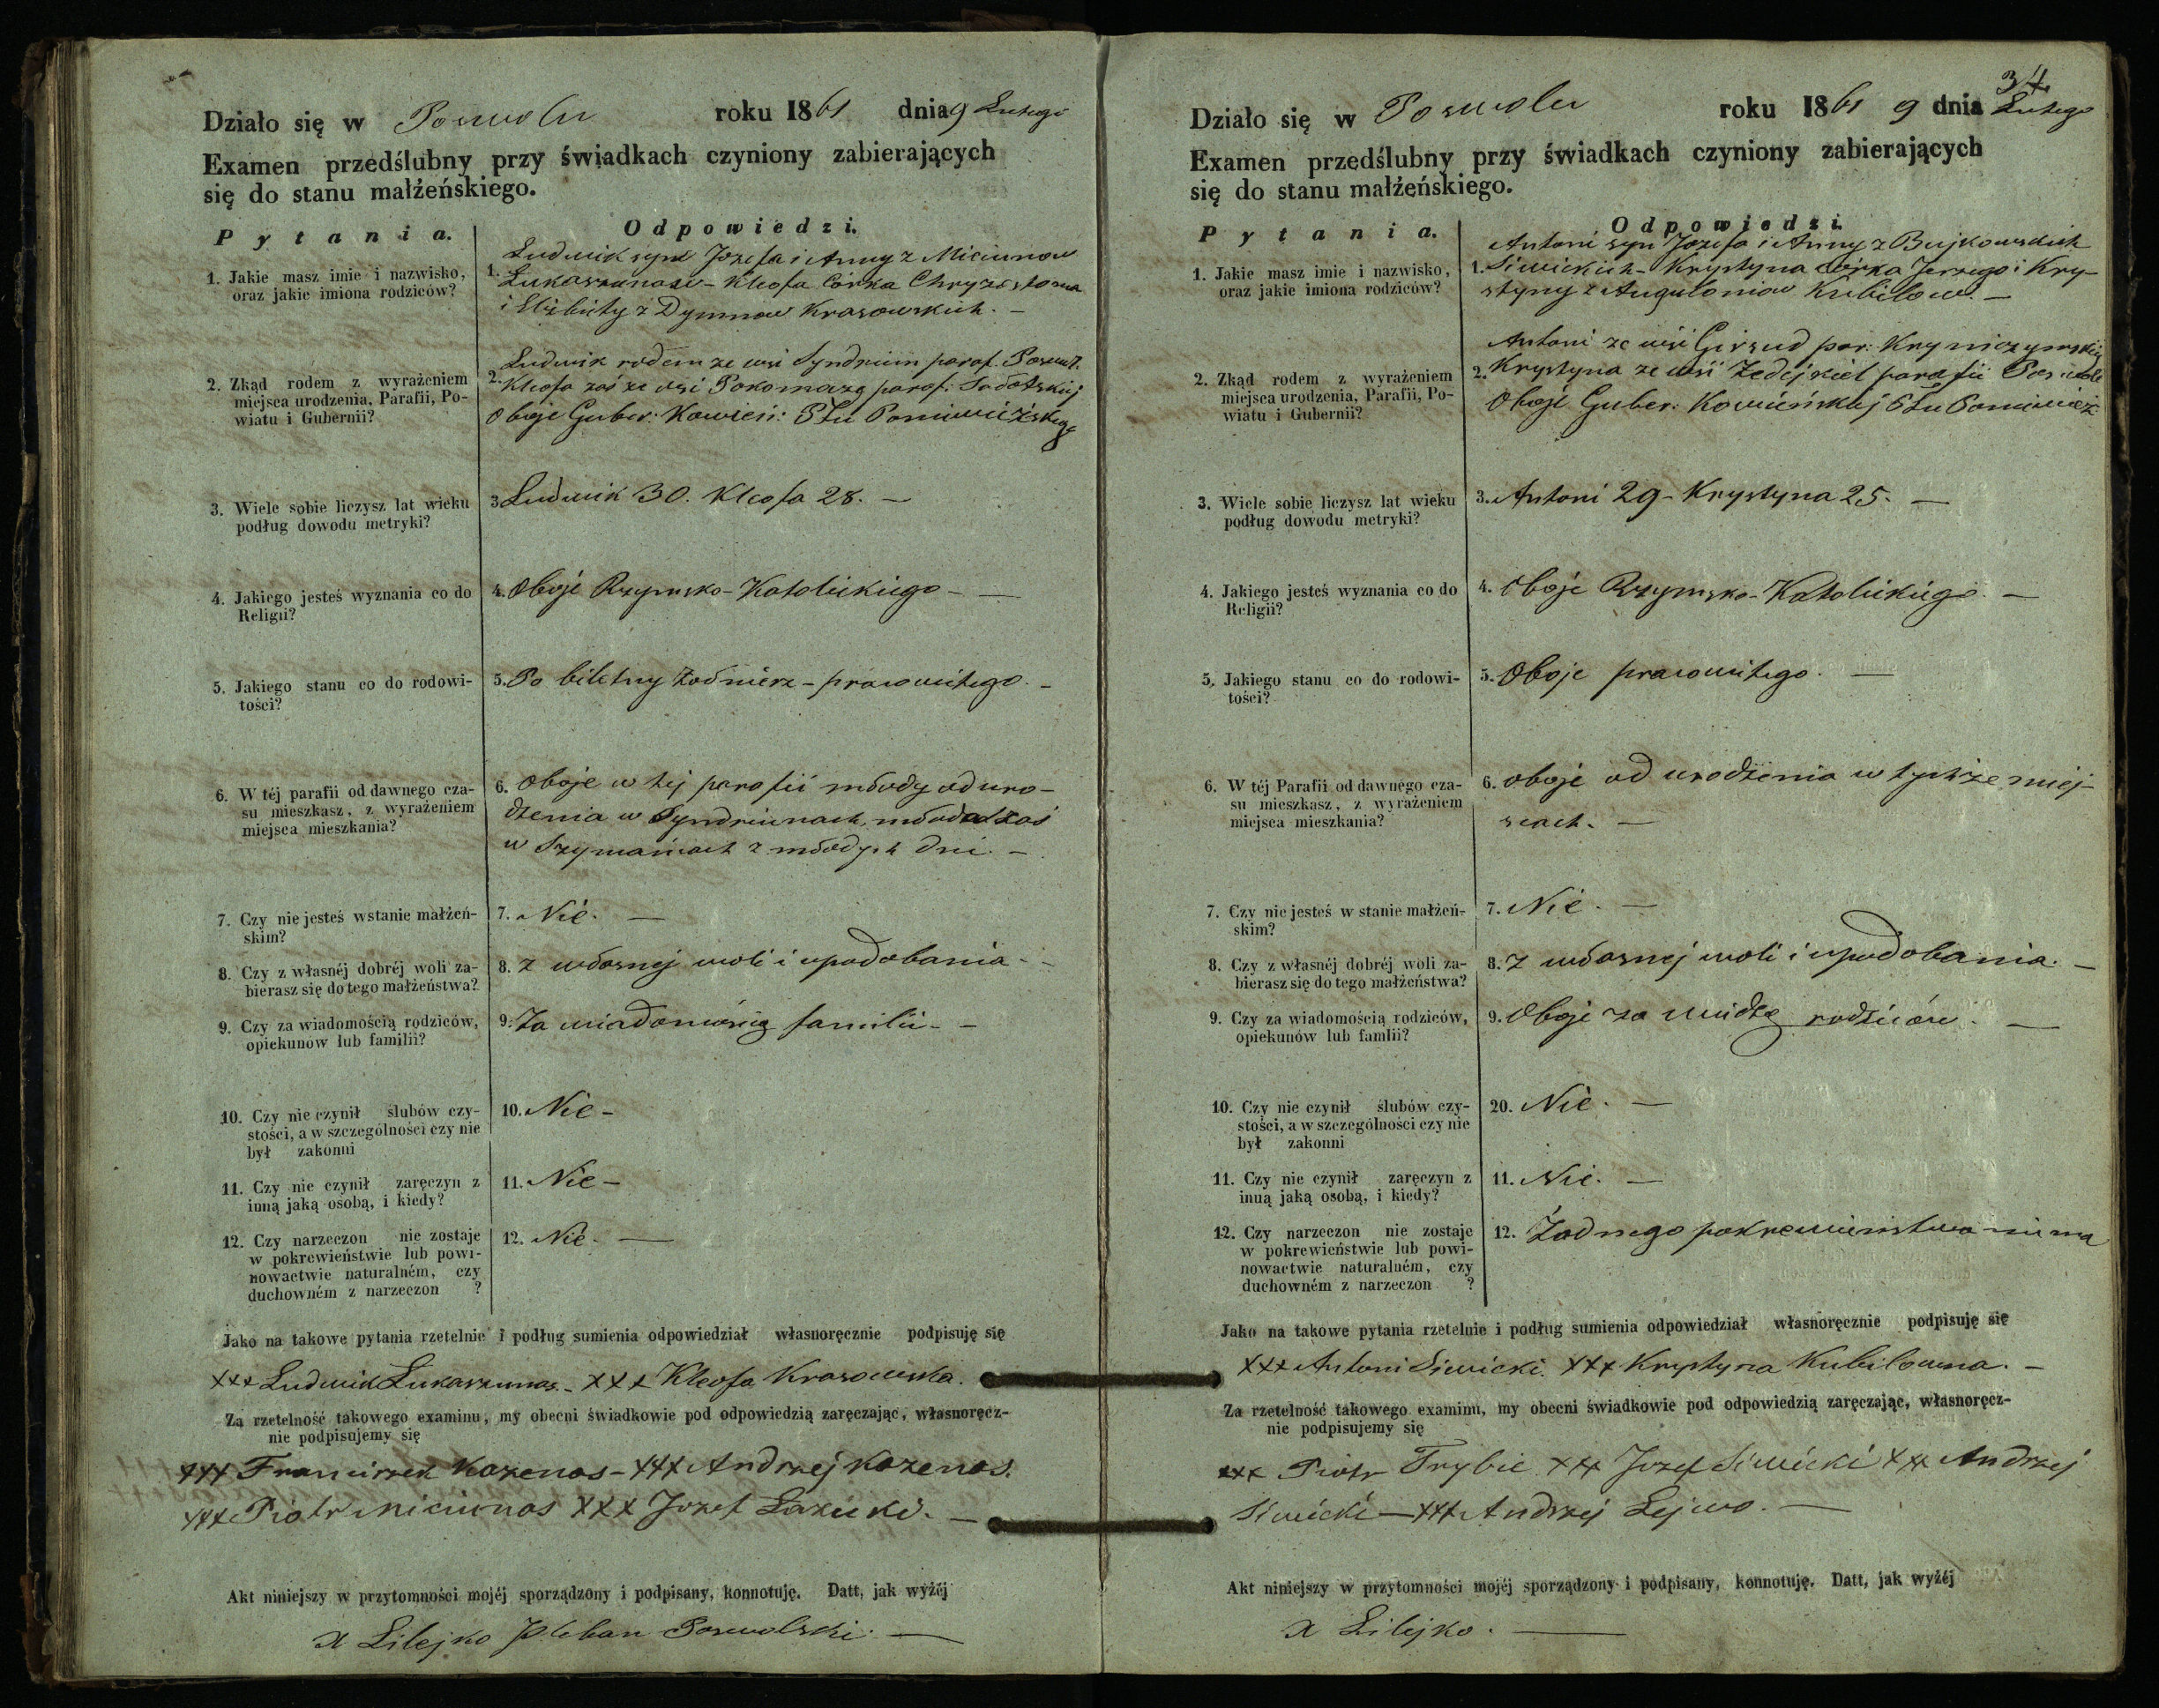 Działo się w Poswolu roku 1861 dnia 9 Lutego
Examen przedślubny przy świadkach czyniony zabierających
się do stanu małżeńskiego.
Pytania.
Odpowiedzi.
1. Jakie masz imie i nazwisko,
oraz jakie imiona rodziców?
Ludwik syn Jozefa i Anny z Miciunow
1. Łukaszunas – Kleofa Córka Chryzostoma
i Elżbiety z Dymnow Krasowskich. –
2. Zkąd rodem z wyrażeniem
miejsca urodzenia, Parafii, Po-
wiatu i Gubernii?
Ludwik rodem ze wsi Syndriun paraf. Poswol.
2. Kleofa zaś ze wsi paraf:
Oboje Guber: Kowień: PTu Poniewiżskego
3. Wiele sobie liczysz lat wieku
podług dowodu metryki?
3 Ludwik 30. Kleofa 28. –
4. Jakiego jesteś wyznania co do
Religii?
4. Oboje Rzymsko-Katolickiego – –
5. Jakiego stanu co do rodowi-
tości?
5. Po biletny Żołnierz – prawowitego. –
6. W téj parafii od dawnego cza-
su mieszkasz, z wyrażeniem
miejsca mieszkania?
6. Oboje w tej parafii młody od uro-
dzenia w Syndriunach, młoda zaś
w Szymaniach z młodych dni. –
7. Czy nie jesteś w stanie małżeń-
skim?
7. Nie. –
8. Czy z własnéj dobréj woli za-
bierasz się do tego małżeństwa?
8. Z własnej woli i upodobania – –
9. Czy za wiadomością rodziców,
opiekunów lub familii?
9. Za wiadomością familii. –
10. Czy nie czynił ślubów czy-
stości, a w szczególności czy nie
był zakonni
10. Nie –
11. Czy nie czynił zaręczyn z
inną jaką osobą, i kiedy?
11. Nie –
12. Czy narzeczon nie zostaje
w pokrewieństwie lub powi-
nowactwie naturalném, czy
duchowném z narzeczon ?
12. Nie. –
Jako na takowe pytania rzetelnie i podług sumienia odpowiedział własnoręcznie podpisuję się
xxx Ludwik Łukaszunas. – xxx Kleofa Krasowska.
Za rzetelność takowego examinu, my obecni świadkowie pod odpowiedzią zaręczając, własnoręcz-
nie podpisujemy się
xxx Franciszek Kozenas – xxx Andrzej Kozenas.
xxx Piotr Miciunas xxx Jozef Łazicki. –
Akt niniejszy w przytomności mojéj sporządzony i podpisany, konnotuję. Datt, jak wyżéj
X Lilejko Pleban Poswolski. –
34
Działo się w Poswolu roku 1861 9 dnia Lutego
Examen przedślubny przy świadkach czyniony zabierających
się do stanu małżeńskiego.
Pytania.
Odpowiedzi.
1. Jakie masz imie i nazwisko,
oraz jakie imiona rodziców?
Antoni syn Jozefa i Anny z Bujkowskich
1. Siwickich – Krystyna córka Jerzego i Kry-
styny z Anguloniow Kubilow. –
2. Zkąd rodem z wyrażeniem
miejsca urodzenia, Parafii, Po-
wiatu i Gubernii?
Antoni ze wsi Girsud par:
2. Krystyna ze wsi Zedejkiel parafii
Oboje Guber: Kowieńskiej PTu Poniewież
3. Wiele sobie liczysz lat wieku
podług dowodu metryki?
3. Antoni 29 – Krystyna 25. –
4. Jakiego jesteś wyznania co do
Religii?
4. Oboje Rzymsko-Katolickiego. –
5. Jakiego stanu co do rodowi-
tości?
5. Oboje prawowitego. –
6. W téj Parafii od dawnego cza-
su mieszkasz, z wyrażeniem
miejsca mieszkania?
6. Oboje od urodzenia w tychże miej-
scach. –
7. Czy nie jesteś w stanie małżeń-
skim?
7. Nie. –
8. Czy z własnéj dobréj woli za-
bierasz się do tego małżeństwa?
8. Z własnej woli i upodobania. –
9. Czy za wiadomością rodziców,
opiekunów lub famlii?
9. Oboje za wiedzą rodziców. –
10. Czy nie czynił ślubów czy-
stości, a w szczególności czy nie
był zakonni
20. Nie. –
11. Czy nie czynił zaręczyn z
inną jaką osobą, i kiedy?
11. Nie. –
12. Czy narzeczon nie zostaje
w pokrewieństwie lub powi-
nowactwie naturalném, czy
duchowném z narzeczon ?
12. Żadnego pokrewieństwa niema
Jako na takowe pytania rzetelnie i podług sumienia odpowiedział własnoręcznie podpisuję się
xxx Antoni Siwicki. xxx Krystyna Kubilowna. –
Za rzetelność takowego examinu, my obecni świadkowie pod odpowiedzią zaręczając, własnoręcz-
nie podpisujemy się
xxx Piotr Trybie xxx Jozef Siwicki xxx Andrzej
Siwicki – xxx Andrzej Lejwo. –
Akt niniejszy w przytomności mojéj sporządzony i podpisany, konnotuję. Datt, jak wyżéj
X Lilejko. –